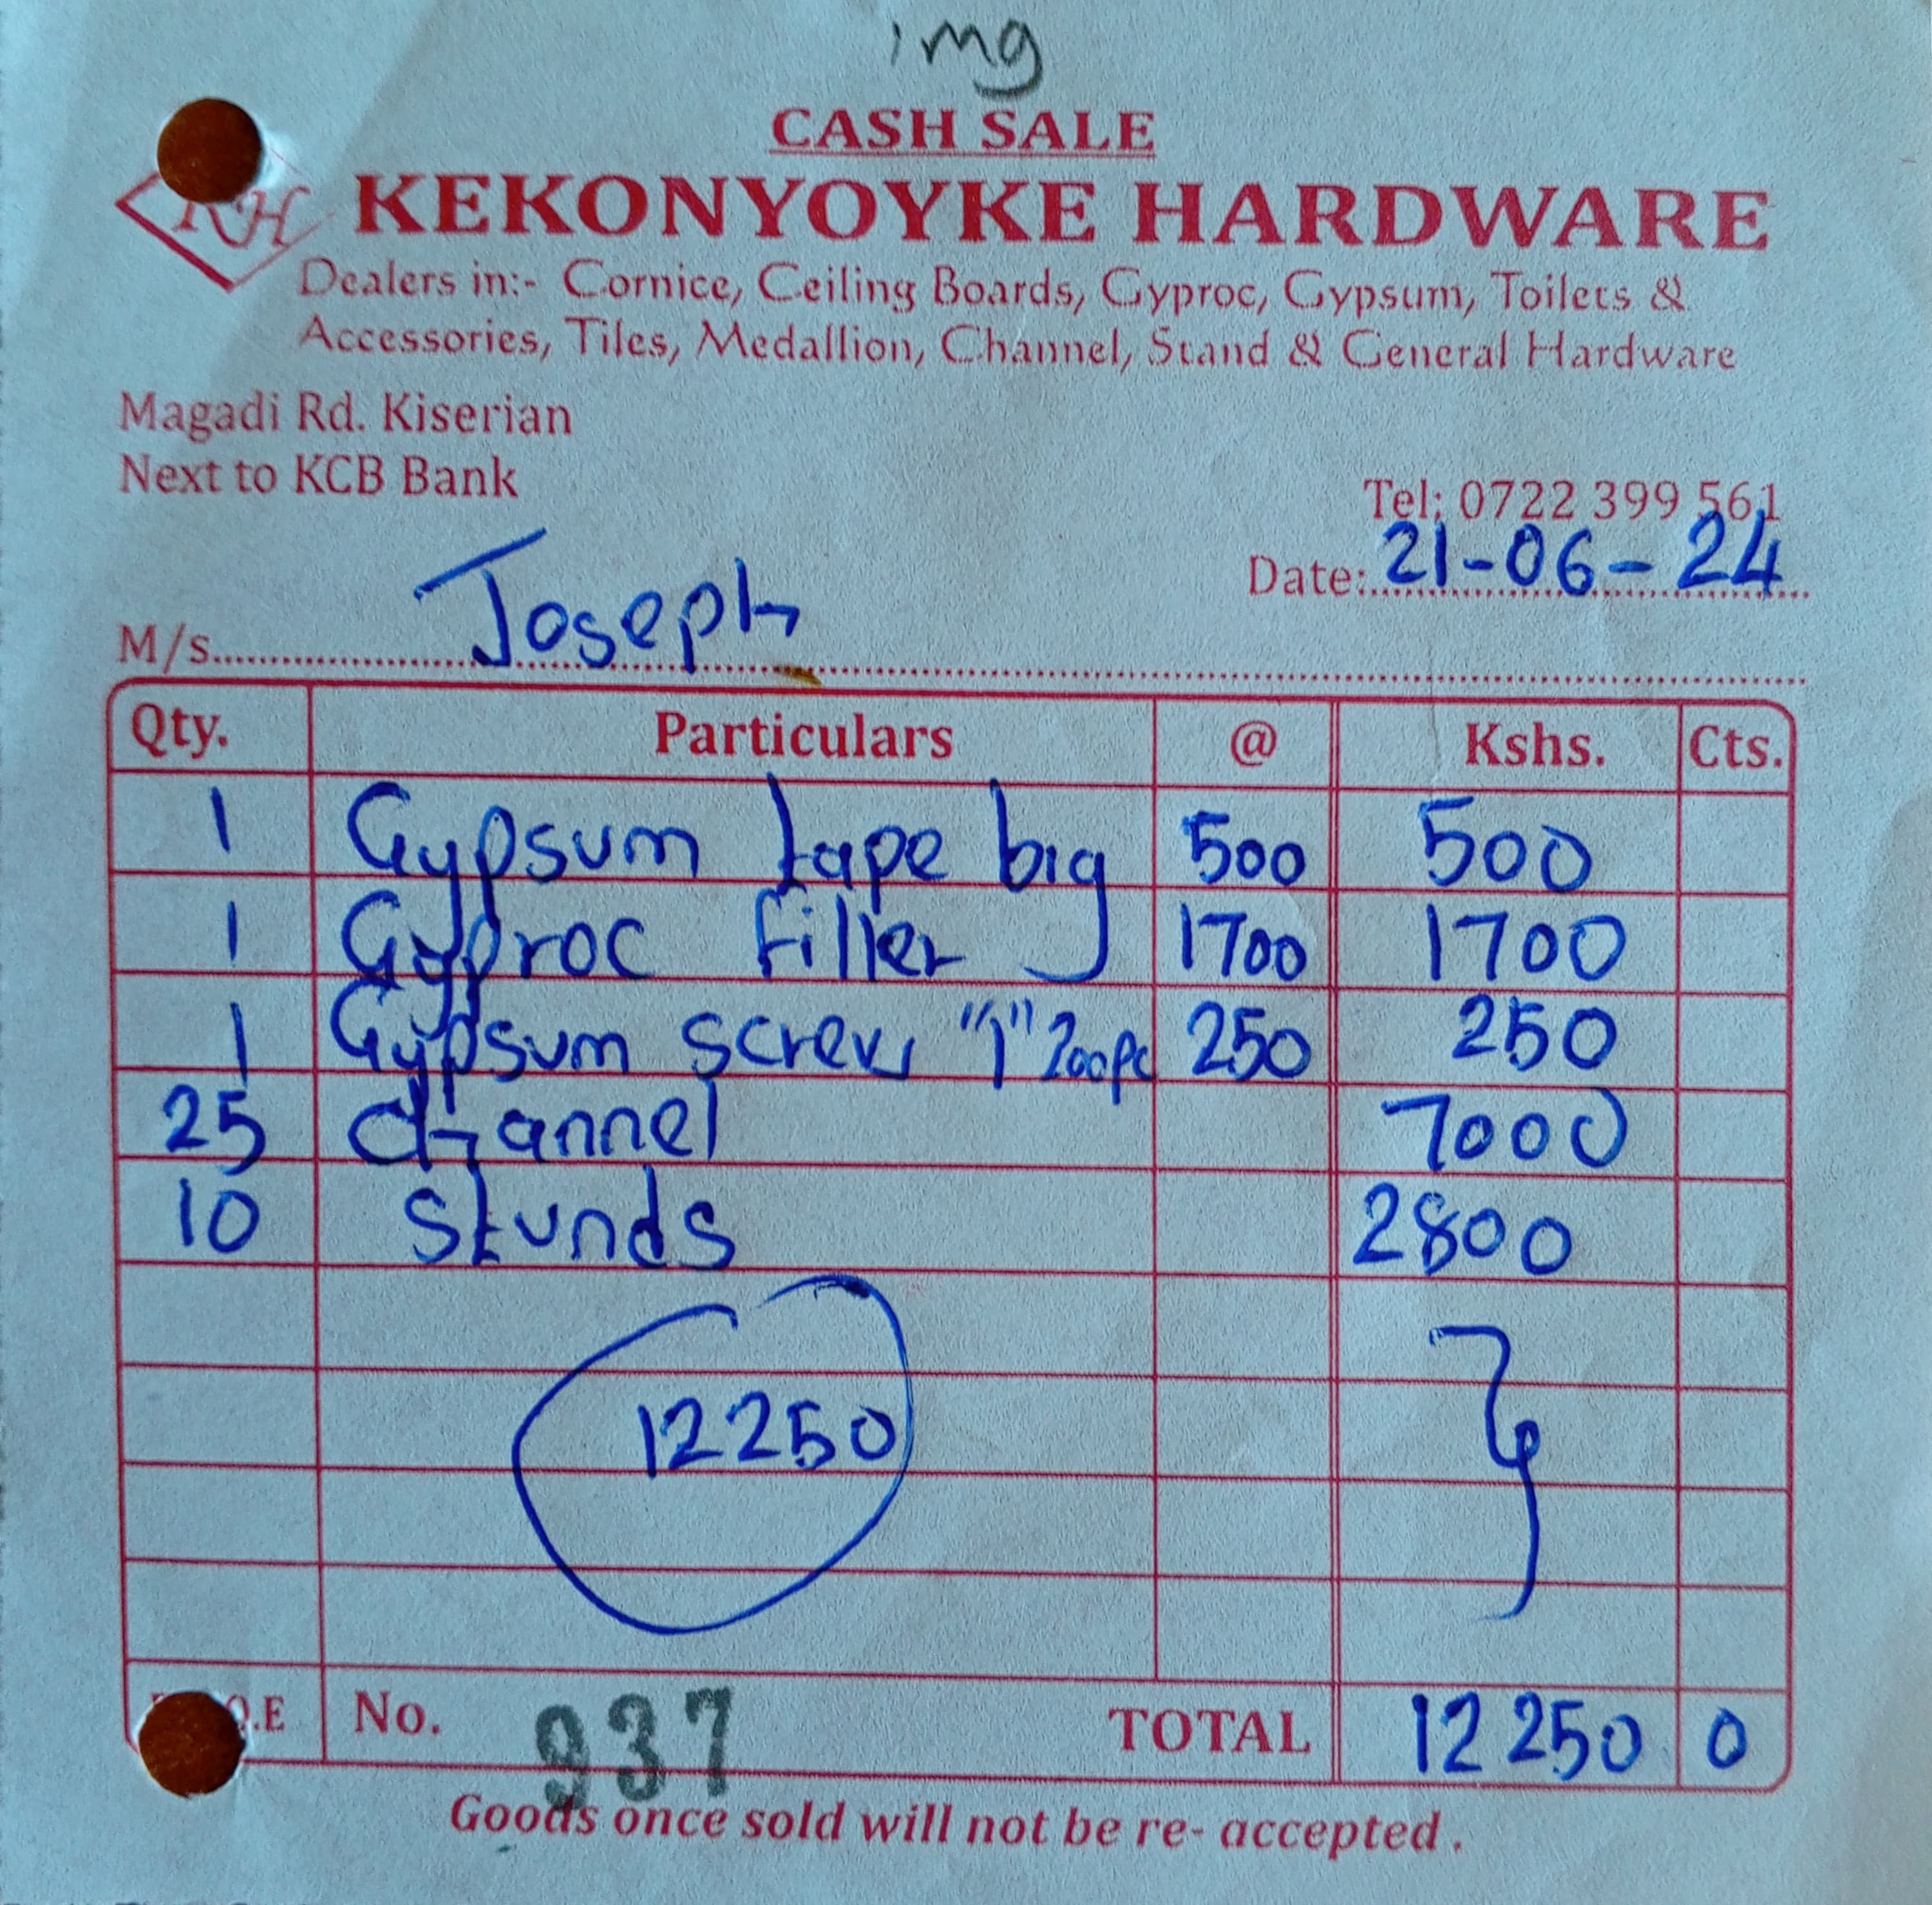 img
CASH SALE
KH KEKONYOYKE HARDWARE
Dealers in:- Cornice, Ceiling Boards, Gyproc, Gypsum, Toilets &
Accessories, Tiles, Medallion, Channel, Stand & General Hardware
Magadi Rd. Kiserian
Next to KCB Bank
Tel: 0722 399 561
Date: 21-06-24
M/s. Joseph
Qty. Particulars @ Kshs. Cts.
1 Gypsum tape big 500 500
1 Gyproc filler 1700 1700
1 Gypsum screw "1" 200pc 250 250
25 channel 7000
10 stunds 2800
12250
.E No. 937 TOTAL 12250 0
Goods once sold will not be re- accepted.